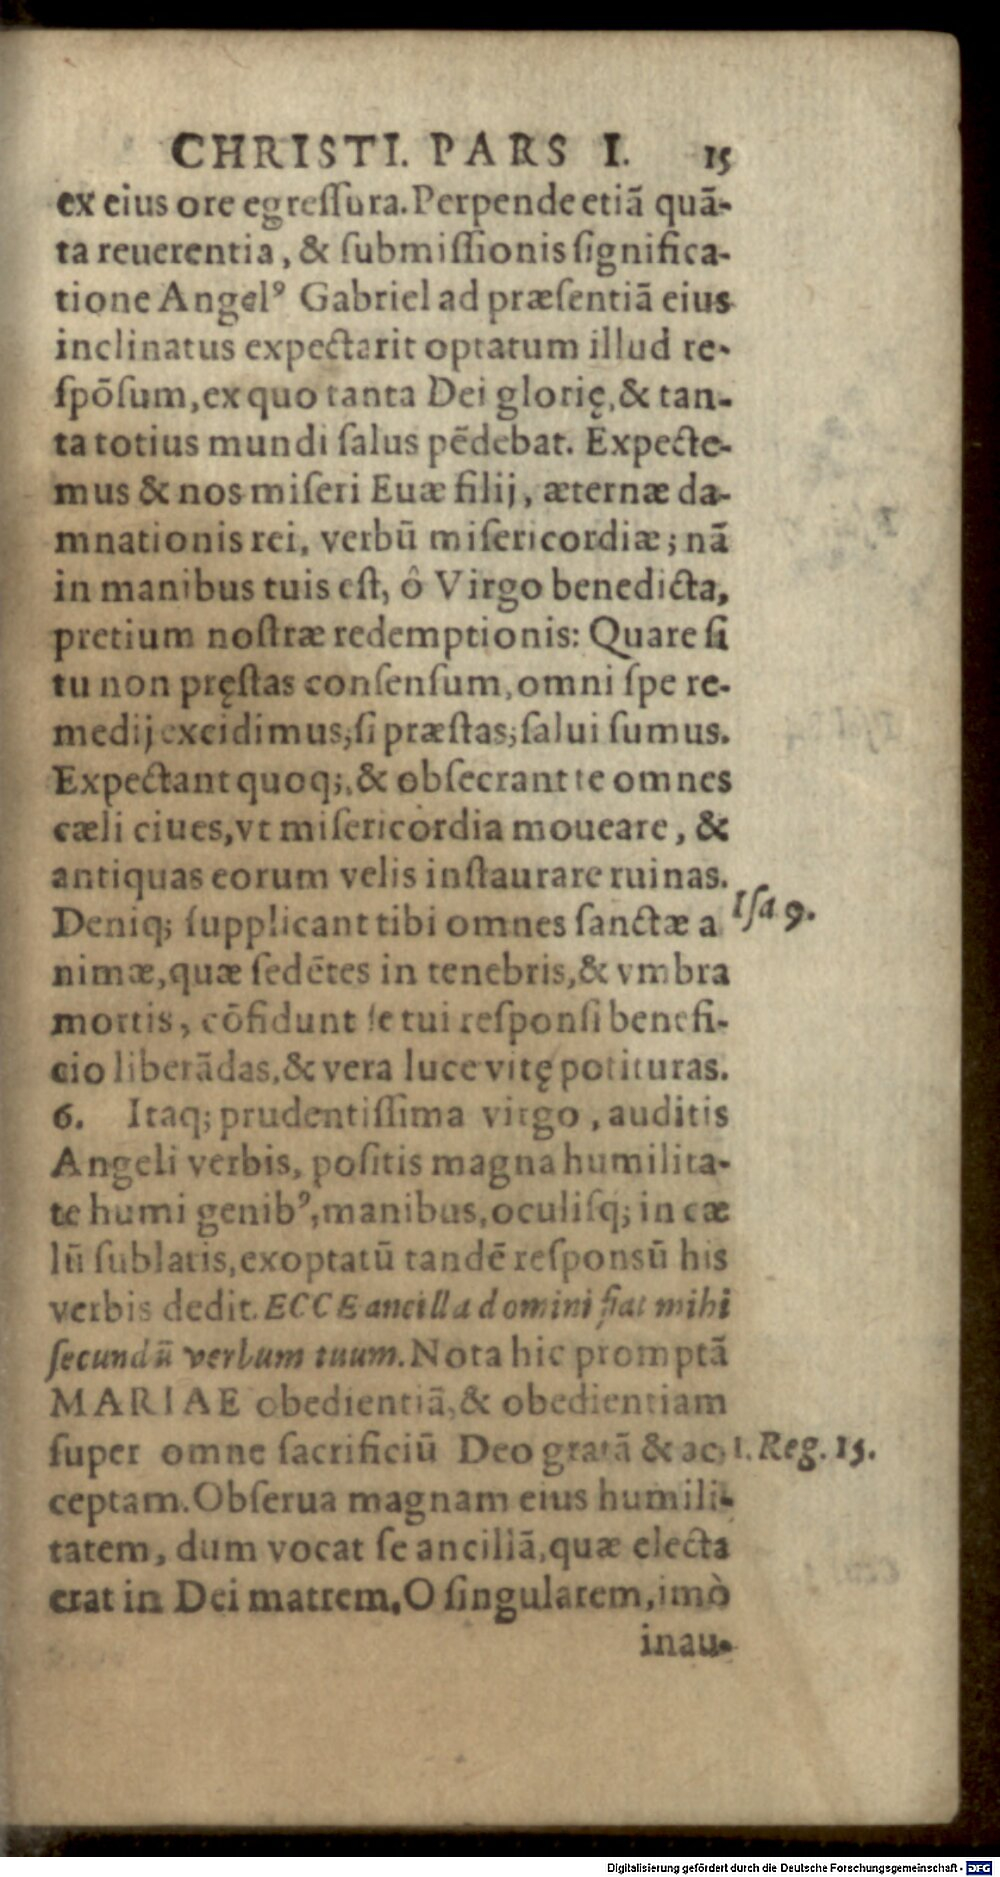 CHRISTI. PARS I. 15
ex eius ore egressura. Perpende etiā quā-
ta reuerentia, & submissionis significa-
tione Angelꝰ Gabriel ad præsentiā eius
inclinatus expectarit optatum illud re-
spōsum, ex quo tanta Dei glorię, & tan-
ta totius mundi salus pēdebat. Expecte-
mus & nos miseri Euæ filij, æternæ da-
mnationis rei, verbū misericordiæ; nā
in manibus tuis est, ô Virgo benedicta,
pretium nostræ redemptionis: Quare si
tu non pręstas consensum, omni spe re-
medij excidimus; si præstas; salui sumus.
Expectant quoq;, & obsecrant te omnes
cæli ciues, vt misericordia moueare, &
antiquas eorum velis instaurare ruinas.
Deniq; supplicant tibi omnes sanctæ a Isa 9.
nimæ, quæ sedētes in tenebris, & vmbra
mortis, cōfidunt se tui responsi benefi-
cio liberādas, & vera luce vitę potituras.
6. Itaq; prudentissima virgo, auditis
Angeli verbis, positis magna humilita-
te humi genibꝰ, manibus, oculisq; in cæ
lū sublatis, exoptatū tandē responsū his
verbis dedit. ECCE ancilla domini fiat mihi
secundū verbum tuum. Nota hic promptā
MARIAE obedientiā, & obedientiam
super omne sacrificiū Deo gratā & ac- 1. Reg. 15.
ceptam. Obserua magnam eius humili-
tatem, dum vocat se ancillā, quæ electa
erat in Dei matrem. O singularem, imò
inau-
Digitalisierung gefördert durch die Deutsche Forschungsgemeinschaft - DFG